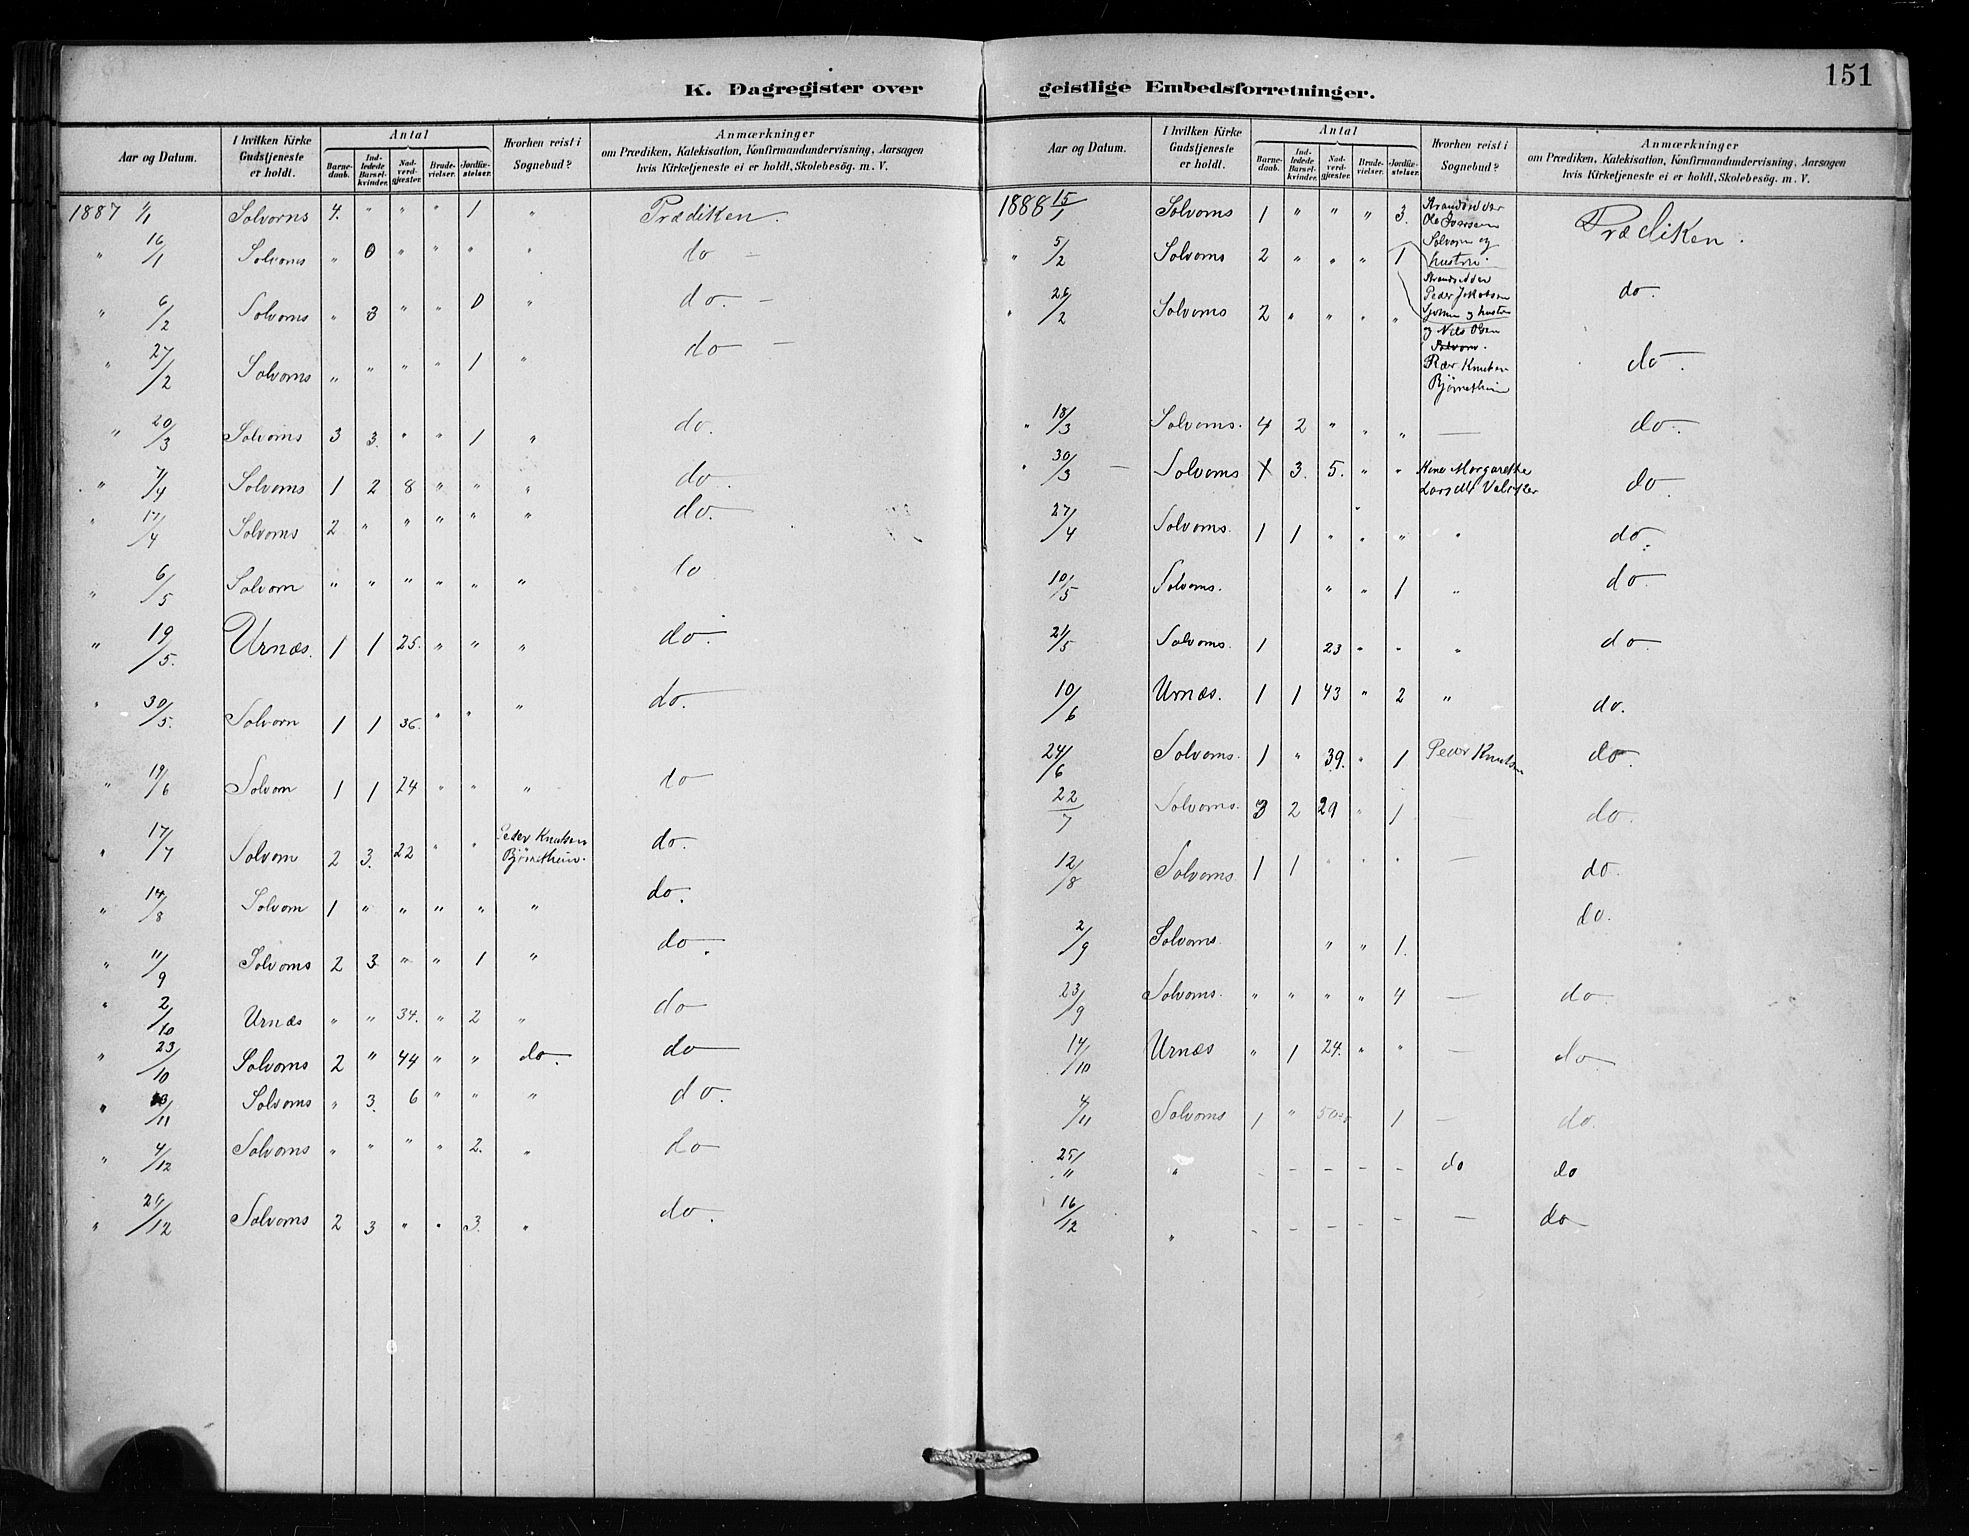 K. Dagregister over geistlige Embedsforretninger.
151
Aar og Datum. | I hvilken Kirke Gudstjeneste er holdt. | Antal | Barnedaab. | Indledede Barselkvinder. | Nadverdgjæster. | Brudevielser. | Jordfæstelser. | Hvorhen reist i Sognebud? | Anmærkninger om Prædiken, Katekisation, Konfirmandundervisning, Aarsagen hvis Kirketjeneste ei er holdt, Skolebesög. m. V.
1887 1/1 Solvorns 4. " " " 1 " Prædiken.
" 16/1 Solvorns " 0 " " " " do —
" 6/2 Solvorns " 3 " " 0 " do. —
" 27/2 Solvorns " " " " 1 " do —
" 20/3 Solvorns 3 3. " " 1 " do.
" 7/4 Solvorns 1 2 8 " " " do.
" 17/4 Solvorns 2 " " " " " do.
" 6/5 Solvorn " " " " " " do
" 19/5. Urnæs. 1 1 25. " " " do.
" 30/5. Solvorn 1 1 36. " " " do.
" 19/6 Solvorn 1 1 24 " " " do
" 17/7 Solvorn 2 3. 22 " " Peder Knutsen Bjørnetheim. do.
" 14/8 Solvorn 1 " " " " " do.
" 11/9 Solvorns 2 3 " " 1 " do.
" 2/10 Urnæs " " 34. " 2 " do
" 23/10 Solvorns 2 " 44 " " do. do
" /11 Solvorns " 3. 6 " " " do.
" 4/12 Solvorns " " " " 2. " do
" 26/12 Solvorns 2 3 " " 3. " do.
Aar og Datum. | I hvilken Kirke Gudstjeneste er holdt. | Antal | Barnedaab. | Indledede Barselkvinder. | Nadverdgjæster. | Brudevielser. | Jordfæstelser. | Hvorhen reist i Sognebud? | Anmærkninger om Prædiken, Katekisation, Konfirmandundervisning, Aarsagen hvis Kirketjeneste ei er holdt, Skolebesög. m. V.
1888 15/1 Solvorns 1 " " " 3. Strandsidder Ole Ivarsen Solvorn og hustru. Prædiken.
" 5/2 Solvorns 2 " " " 1 Strandsidder Peder Jakobsen og hustru do.
" 26/2 Solvorns 2 " " " " og Nils Olsen Solvorn. Peder Knutsen Bjørnetheim do.
" 18/3 Solvorns. 4 2 " " " — do.
" 30/3 — Solvorns 1 3. 5. " " Kone Margarethe do.
27/4 Solvorns. 1 1 " " " " do.
10/5 Solvorns. " " 1 " do.
21/5 Solvorns. 1 23 " " " do.
10/6 Urnæs. 1 1 43 " 2 " do.
24/6 Solvorns. 1 " 39. " 1 Peder Knutsen do.
22/7 Solvorns. 3 2 29 " 1 — do.
12/8 Solvorns. 1 1 " " " — do.
2/9 Solvorns. " " 1. do.
23/9 Solvorns. " " " " 4 — do.
14/10 Urnæs " 1 24. " " — do.
4/11 Solvorns 1 " 50 " 1 — do.
25/" " – – – – – do do
16/12 " – – – – – — do